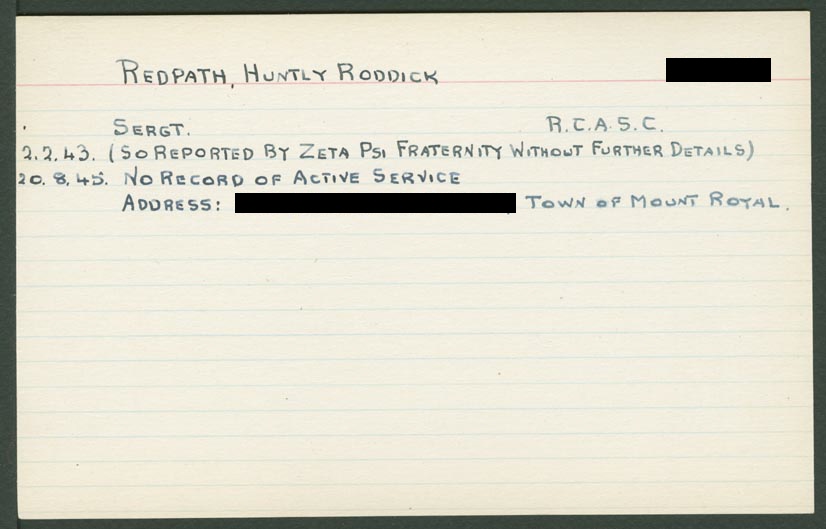 REDPATH, HUNTLY RODDICK
SERGT. R.C.A.S.C.
2.2.43. (SO REPORTED BY ZETA PSI FRATERNITY WITHOUT FURTHER DETAILS)
20.8.45. NO RECORD OF ACTIVE SERVICE
ADDRESS: TOWN OF MOUNT ROYAL.